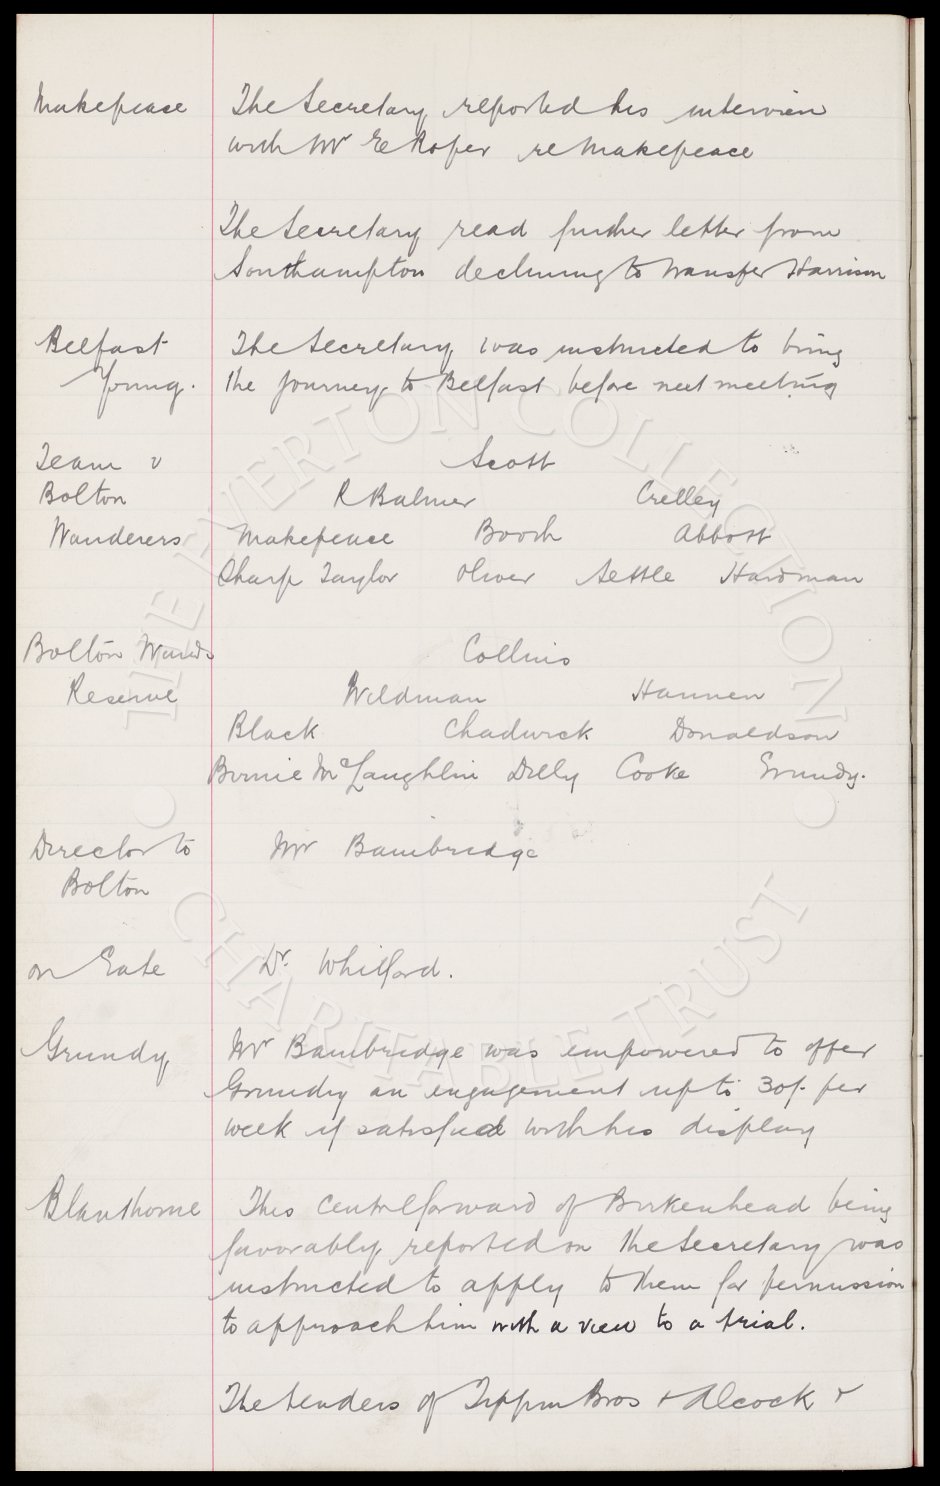 Makepeace The Secretary reported his interview
with Mr E Roper re Makepeace
The Secretary read further letter from
Southampton declining to transfer Harrison
Belfast The Secretary was instructed to bring
Young. the journey to Belfast before next meeting
Team v Scott
Bolton R Balmer Crelley
Wanderers Makepeace Booth Abbott
Sharp Taylor Oliver Settle Hardman
Bolton Wands Collins
Reserve Wildman Hannen
Black Chadwick Donaldson
Birnie McLaughlin Dilly Cooke Grundy.
Director to Mr Bainbridge
Bolton
on Gate Dr. Whitford.
Grundy Mr Bainbridge was empowered to offer
Grundy an engagement up to 30/- per
week if satisfied with his display
Blanthorne This Centre forward of Birkenhead being
favorably reported on the Secretary was
instructed to apply to them for permission
to approach him with a view to a trial.
The tenders of Tippin Bros & Alcock &
THE EVERTON COLLECTION
CHARITABLE TRUST